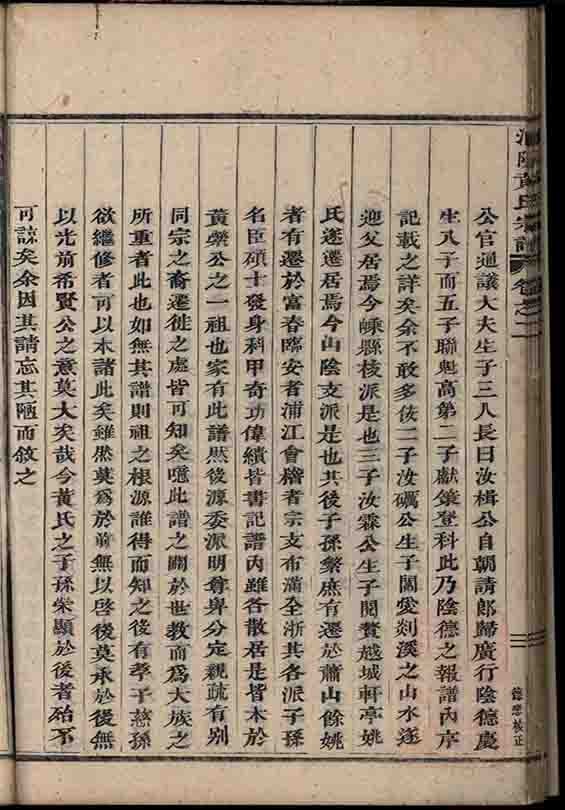 黃氏宗譜 卷之二
公官通議大夫生子三人長曰汝楫公自朝請郎歸廣行陰德慶
生八子而五子聯魁高第二子獻策登科此乃陰德之報譜內序
記載之詳矣余不敢多佞二子汝礪公生子閣愛剡溪之山水遂
迎父居焉今嵊縣棱派是也三子汝霖公生子閎贅越城軒亭姚
氏遂遷居焉今山陰支派是也其後子孫繁庶有遷於蕭山餘姚
者有遷於富春臨安者浦江會稽者宗支布滿全浙其各派子孫
名臣碩士發身科甲奇功偉績皆書記譜內雖各散居是皆本於
黃榮公之一祖也家有此譜然後源委派明尊卑分定親疏有別
同宗之裔遷徙之處皆可知矣噫此譜之關於世教而爲大族之
所重者此也如無其譜則祖之根源誰得而知之後有孝子慈孫
欲繼修者可以本諸此矣雖然莫爲於前無以啓後莫承於後無
以光前希賢公之意莫大矣哉今黃氏之子孫榮顯於後者殆不
可諒矣余因其請忘其陋而敘之
校正